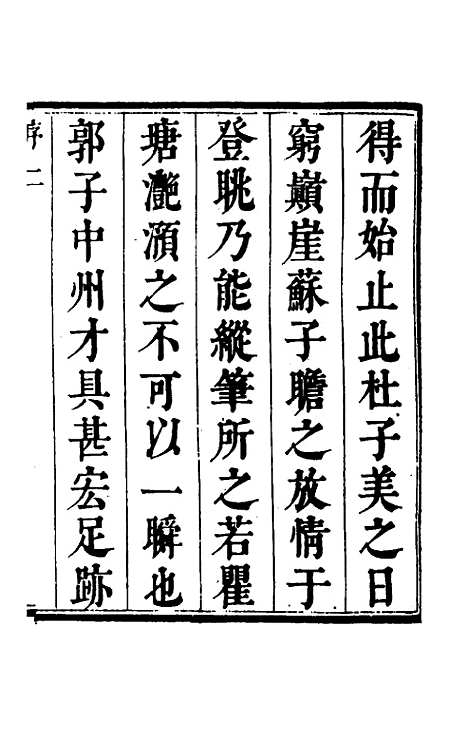 得而始止此杜子美之日
窮巔崖蘇子瞻之放情于
登眺乃能縱筆所之若瞿
塘灔澦之不可以一瞬也
郭子中州才具甚宏足跡
序二